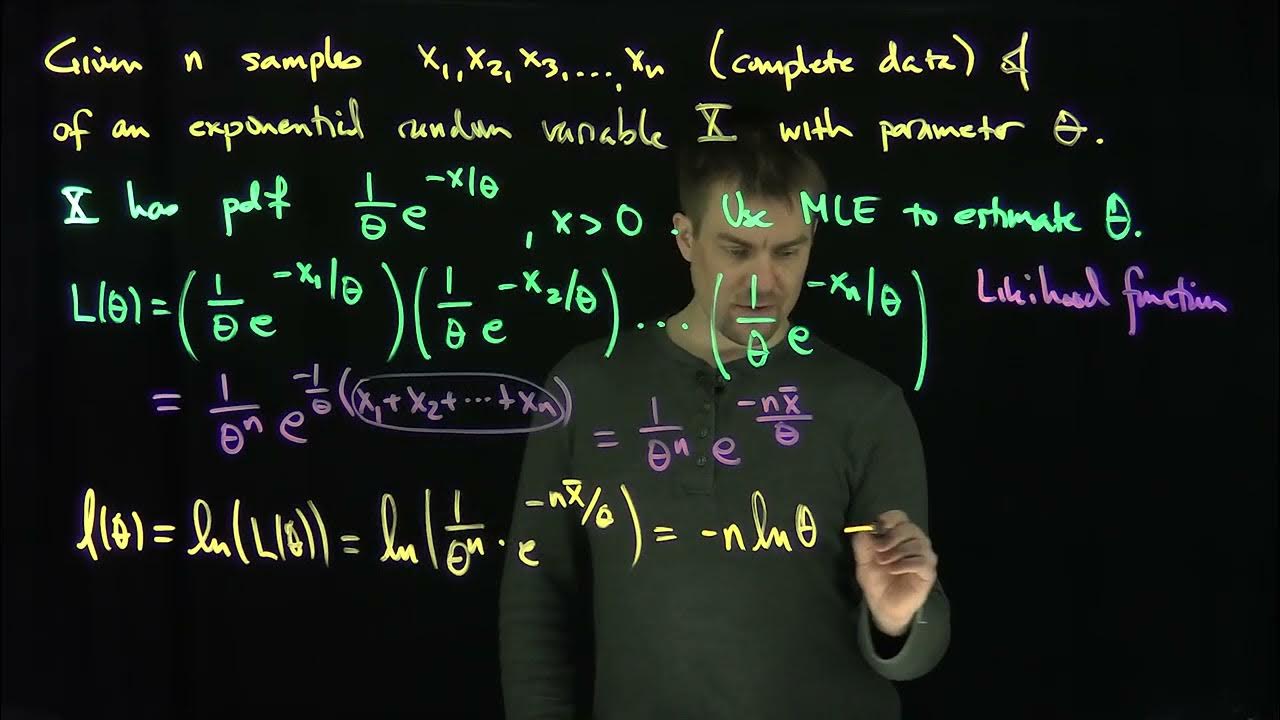 Given n samples x₁, x₂, x₃, ..., xₙ (complete data)
of an exponential random variable X with parameter θ.
X has pdf 1/θ e^(-x/θ), x > 0. Use MLE to estimate θ.
L(θ) = (1/θ e^(-x₁/θ))(1/θ e^(-x₂/θ)) ... (1/θ e^(-xₙ/θ)) Likihood function
= 1/θⁿ e^(-1/θ (x₁+x₂+⋯+xₙ)) = 1/θⁿ e^(-nx̄/θ)
l(θ) = ln(L(θ)) = ln(1/θⁿ · e^(-nx̄/θ)) = -n ln θ -